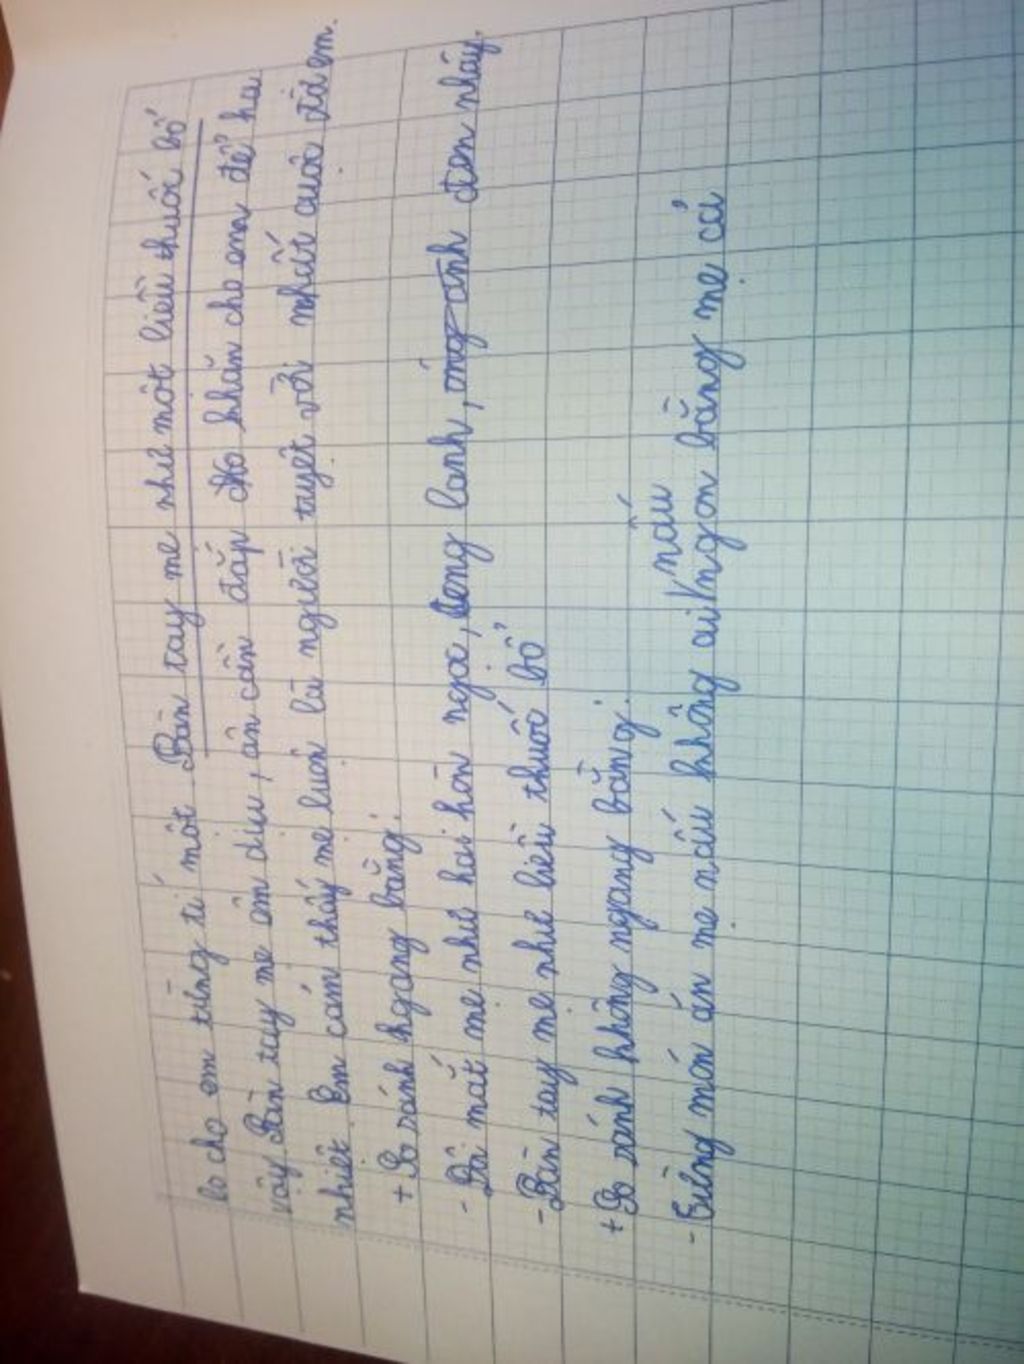 lo cho em từng tí một. Bàn tay mẹ như một liều thuốc bổ
vậy Bàn tay mẹ êm dịu, ân cần đắp cho khăn cho em để hạ
nhiệt. Em cảm thấy mẹ luôn là người tuyệt vời nhất cuộc đời em.
+ So sánh ngang bằng:
- Đôi mắt mẹ như hai hòn ngọc, long lanh, óng ánh đen nháy.
- Bàn tay mẹ như liều thuốc bổ
+ So sánh không ngang bằng:
nấu
- Từng món ăn mẹ nấu không ai ngon bằng mẹ cả